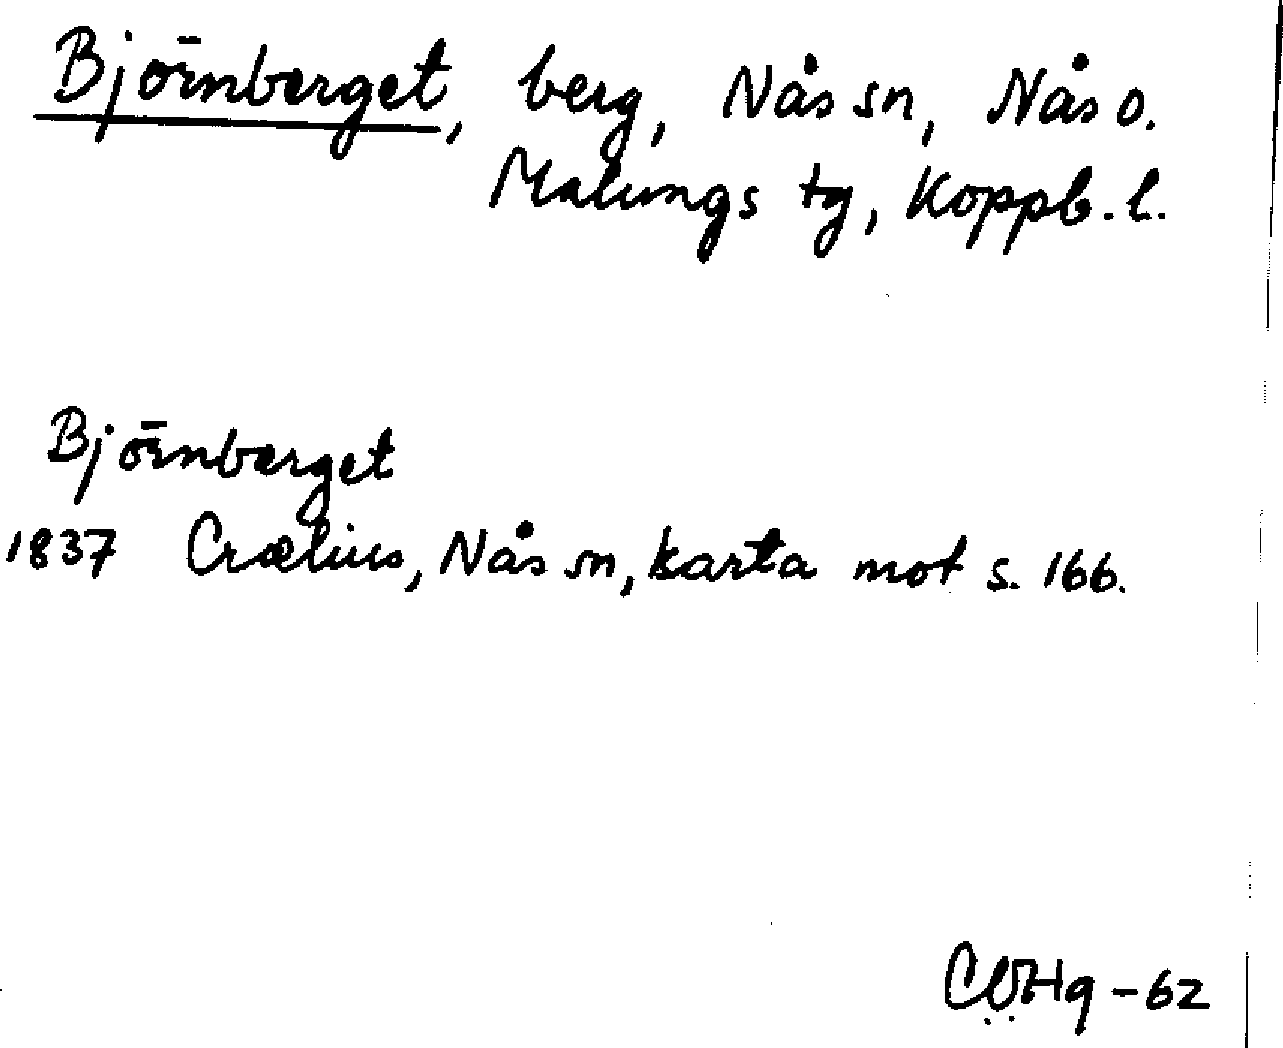 Björnberget, berg, Nås sn, Nås o.
Malungs tg, Koppb. l.
Björnberget
1837 Crælius, Nås sn, karta mot s. 166.